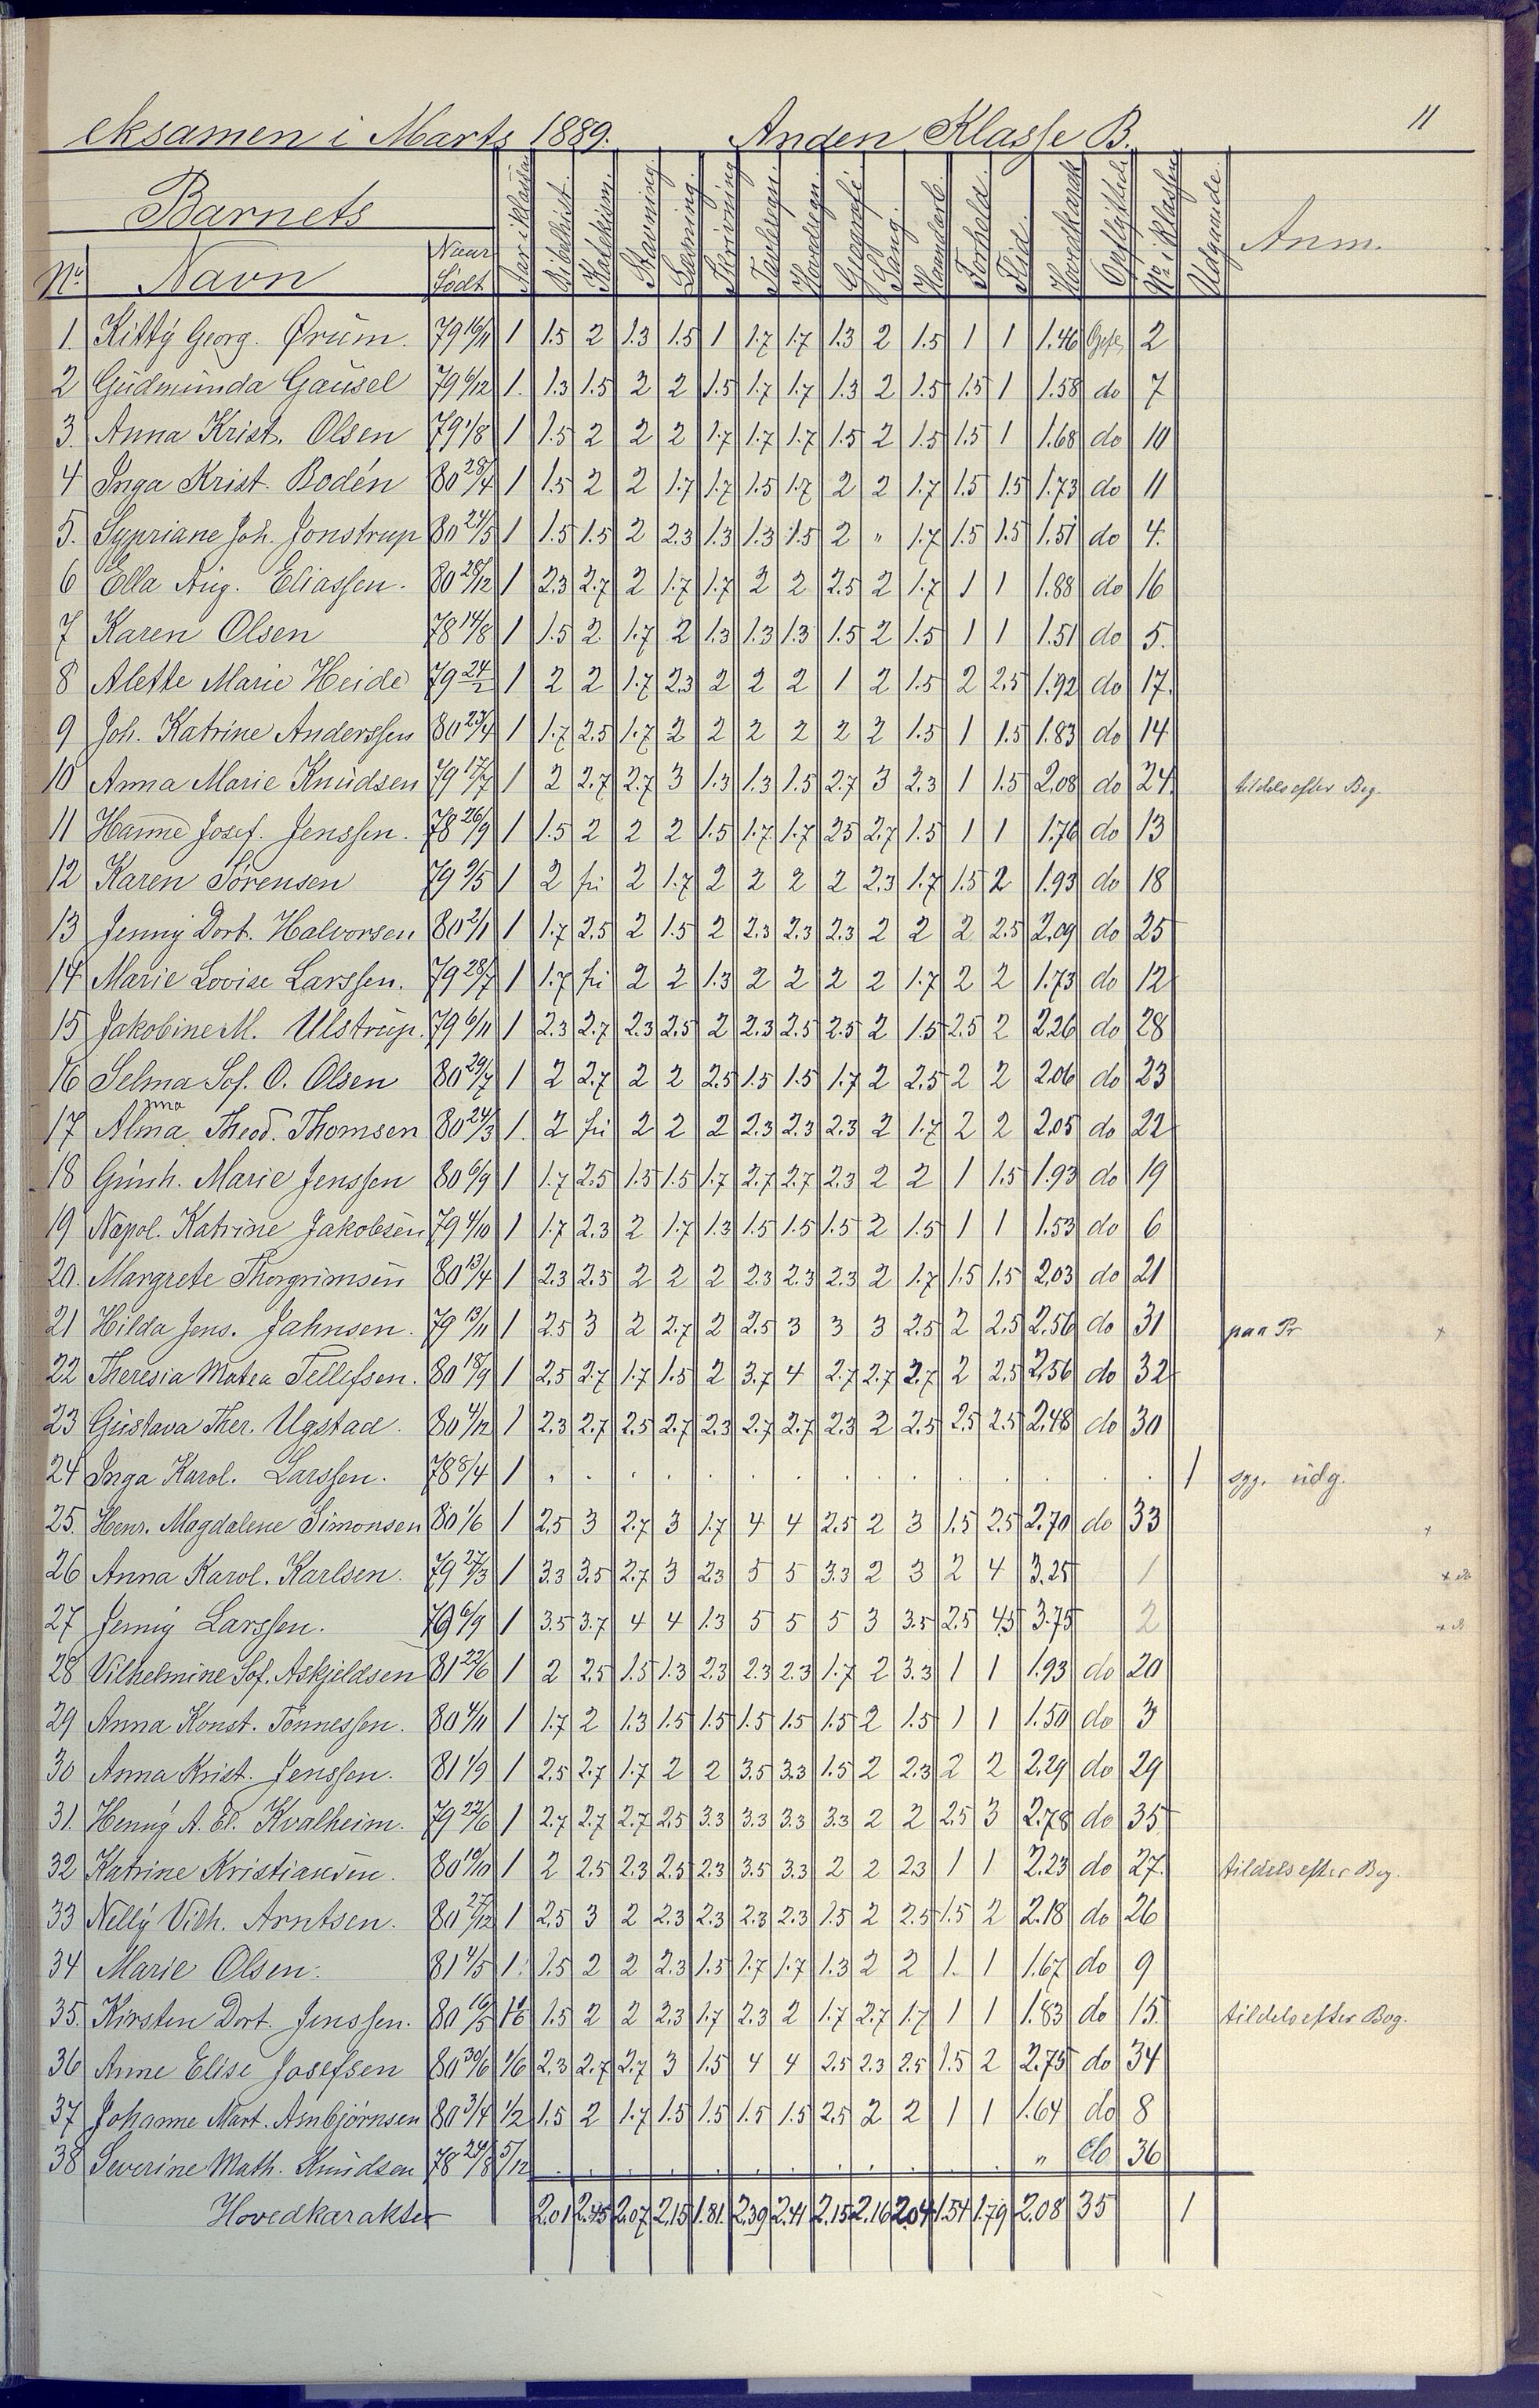 11
eksamen i Marts 1889. Anden Klasse B.
Barnets
No. Navn Naar født Aar i klassen Bibelhist. Katekism. Stavning Læsning. Skrivning Tavleregn. Hovedregn. Geografi Sang. Haandarb. Forhold. Flid. Hovedkarak Opflyttede No. i Klassen Udgaaede. Anm.
1. Kitty Georg. Ørum. 79 16/11 1 1.5 2 1.3 1.5 1 1.7 1.7 1.3 2 1.5 1 1 1.46 2
2 Gudmunda Gausel 79 6/12 1. 1.3 1.5 2 2 1.5 1.7 1.7 1.3 2 1.5 1.5 1 1.58 do 7
3. Anna Krist. Olsen 79 1/8 1 1.5 2 2 2 1.7 1.7 1.7 1.5 2 1.5 1.5 1 1.68 do 10
4 Inga Krist. Bodén 80 28/4 1 1.5 2 2 1.7 1.7 1.5 1.7 2 2 1.7 1.5 1.5 1.73 do 11
5. Sypriane Joh. Jonstrup 80 24/5 1 1.5 1.5 2 2.3 1.3 1.3 1.5 2 " 1.7 1.5 1.5 1.51 do 4.
6 Ella Aug. Eliassen. 80 28/12 1 2.3 2.7 2 1.7 1.7 2 2 2.5 2 1.7 1 1 1.88 do 16
7 Karen Olsen 78 14/8 1 1.5 2 1.7 2 1.3 1.3 1.3 1.5 2 1.5 1 1 1.51 do 5.
8 Alette Marie Heide 79 24/2 1 2 2 1.7 2.3 2 2 2 1 2 1.5 2 2.5 1.92 do 17.
9 Joh. Katrine Anderssen 80 23/4 1 1.7 2.5 1.7 2 2 2 2 2 2 1.5 1 1.5 1.83 do 14
10 Anna Marie Knudsen 79 17/7 1 2 2.7 2.7 3 1.3 1.3 1.5 2.7 3 2.3 1 1.5 2.08 do 24. tildels efter Beg.
11 Hanne Josef. Jenssen. 78 26/9 1 1.5 2 2 2 1.5 1.7 1.7 2.5 2.7 1.5 1 1 1.76 do 13
12 Karen Sørensen 79 9/5 1 2 fri 2 1.7 2 2 2 2 2.3 1.7 1.5 2 1.93 do 18
13 Jenny Dort. Halvorsen 80 2/1 1 1.7 2.5 2 1.5 2 2.3 2.3 2.3 2 2 2 2.5 2.09 do 25
14 Marie Lovise Larssen. 79 28/7 1 1.7 fri 2 2 1.3 2 2 2 2 1.7 2 2 1.73 do 12
15 Jakobine M. Ulstrup. 79 6/11 1 2.3 2.7 2.3 2.5 2 2.3 2.5 2.5 2 1.5 2.5 2 2.26 do 28
16 Selma Sof. O. Olsen 80 29/7 1 2 2.7 2 2 2.5 1.5 1.5 1.7 2 2.5 2 2 2.06 do 23
17 Alma Theod. Thomsen 80 24/3 1. 2 fri 2 2 2 2.3 2.3 2.3 2 1.7 2 2 2.05 do 22
18 Gunh. Marie Jenssen 80 6/9 1 1.7 2.5 1.5 1.5 1.7 2.7 2.7 2.3 2 2 1 1.5 1.93 do 19
19 Napol. Katrine Jakobsen 79 4/10 1 1.7 2.3 2 1.7 1.3 1.5 1.5 1.5 2 1.5 1 1 1.53 do 6
20. Margrete Thorgrimsen 80 13/4 1 2.3 2.5 2 2 2 2.3 2.3 2.3 2 1.7 1.5 1.5 2.03 do 21
21 Hilda Jens. Jahnsen. 79 13/11 1 2.5 3 2 2.7 2 2.5 3 3 3 2.5 2 2.5 2.56 do 31 paa Pr +
22 Theresia Matea Tellefsen. 80 18/9 1 2.5 2.7 1.7 1.5 2 3.7 4 2.7 2.7 2.7 2 2.5 2.56 do 32
23 Gustava Ther. Ugstad. 80 4/12 1 2.3 2.7 2.5 2.7 2.3 2.7 2.7 2.3 2 2.5 2.5 2.5 2.48 do 30
24 Inga Karol. Larssen. 78 8/4 1 . . . . . . . . . . . . . . . 1 syg. udg.
25. Henr. Magdalene Simonsen 80 1/6 1 2.5 3 2.7 3 1.7 4 4 2.5 2 3 1.5 2.5 2.70 do 33 +
26 Anna Karol. Karlsen. 79 27/3 1 3.3 3.5 2.7 3 2.3 5 5 3.3 2 3 2 4 3.25 1 + do
27 Jenny Larssen. 79 6/9 1 3.5 3.7 4 4 1.3 5 5 5 3 3.5 2.5 4.5 3.75 2 + do
28 Vilhelmine Sof. Askjeldsen 81 22/6 1 2 2.5 1.5 1.3 2.3 2.3 2.3 1.7 2 3.3 1 1 1.93 do 20
29 Anna Konst. Tønnessen. 80 4/11 1 1.7 2 1.3 1.5 1.5 1.5 1.5 1.5 2 1.5 1 1 1.50 do 3
30 Anna Krist. Jenssen. 81 1/9 1 2.5 2.7 1.7 2 2 3.5 3.3 1.5 2 2.3 2 2 2.29 do 29
31. Henny A. El. Kvalheim. 79 22/6 1 2.7 2.7 2.7 2.5 3.3 3.3 3.3 3.3 2 2 2.5 3 2.78 do 35
32 Katrine Kristiansen. 80 19/10 1 2 2.5 2.3 2.5 2.3 3.5 3.3 2 2 2.3 1 1 2.23 do 27. tildels efter Beg.
33 Nelly Vilh. Arntsen. 80 27/12 1 2.5 3 2 2.3 2.3 2.3 2.3 1.5 2 2.5 1.5 2 2.18 do 26
34 Marie Olsen. 81 4/5 1. 1.5 2 2 2.3 1.5 1.7 1.7 1.3 2 2 1. 1 1.67 do 9
35. Kirsten Dort. Jenssen. 80 16/5 1/6 1.5 2 2 2.3 1.7 2.3 2 1.7 2.7 1.7 1 1 1.83 do 15. tildels efter Beg.
36 Anne Elise Josefsen 80 30/6 1/6 2.3 2.7 2.7 3 1.5 4 4 2.5 2.3 2.5 1.5 2 2.75 do 34
37 Johanne Mart. Asnbjørnsen 80 3/4 1/2 1.5 2 1.7 1.5 1.5 1.5 1.5 2.5 2 2 1 1 1.64 do 8
38 Severine Math. Knudsen 78 24/8 5/12 . . . . . . . . . . . . " do 36
Hovedkarakter 2.01 2.45 2.07 2.15 1.81. 2.39 2.41 2.15 2.16 2.04 1.54 1.79 2.08 35 1